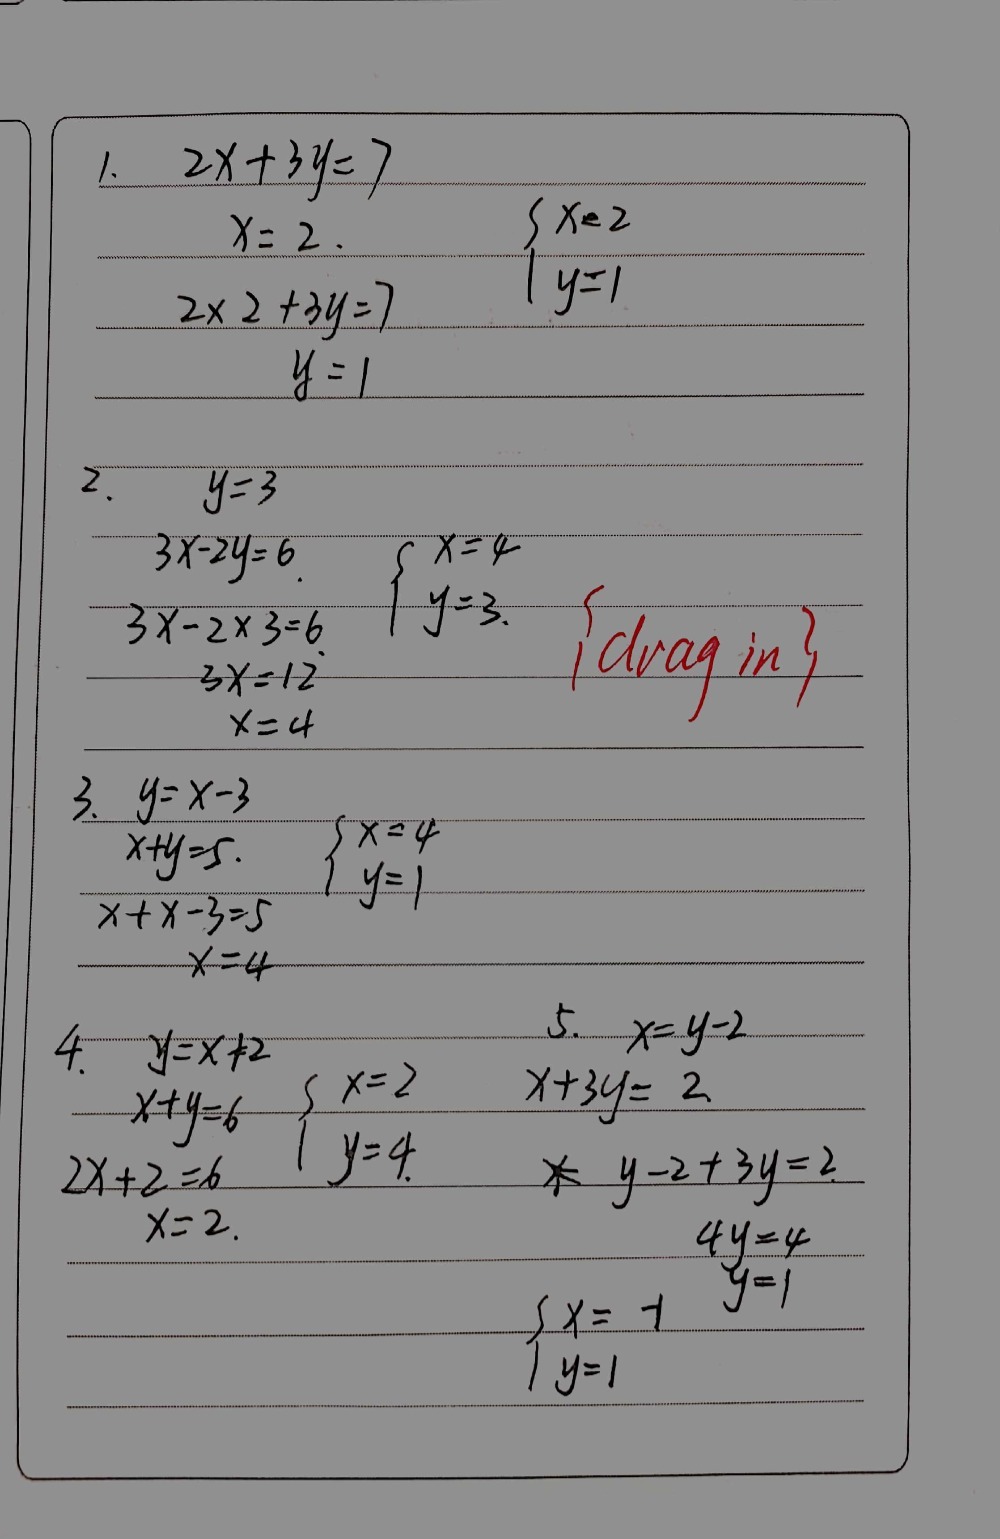 1. 2x+3y=7
x=2.
2×2+3y=7
y=1
{x=2
y=1
2. y=3
3x-2y=6.
3x-2×3=6.
3x=12
x=4
{x=4
y=3.
{drag in}
3. y=x-3
x+y=5.
x+x-3=5
x=4
{x=4
y=1
4. y=x+2
x+y=6
2x+2=6
x=2.
{x=2
y=4.
5. x=y-2
x+3y=2.
y-2+3y=2.
4y=4
y=1
{x=-1
y=1